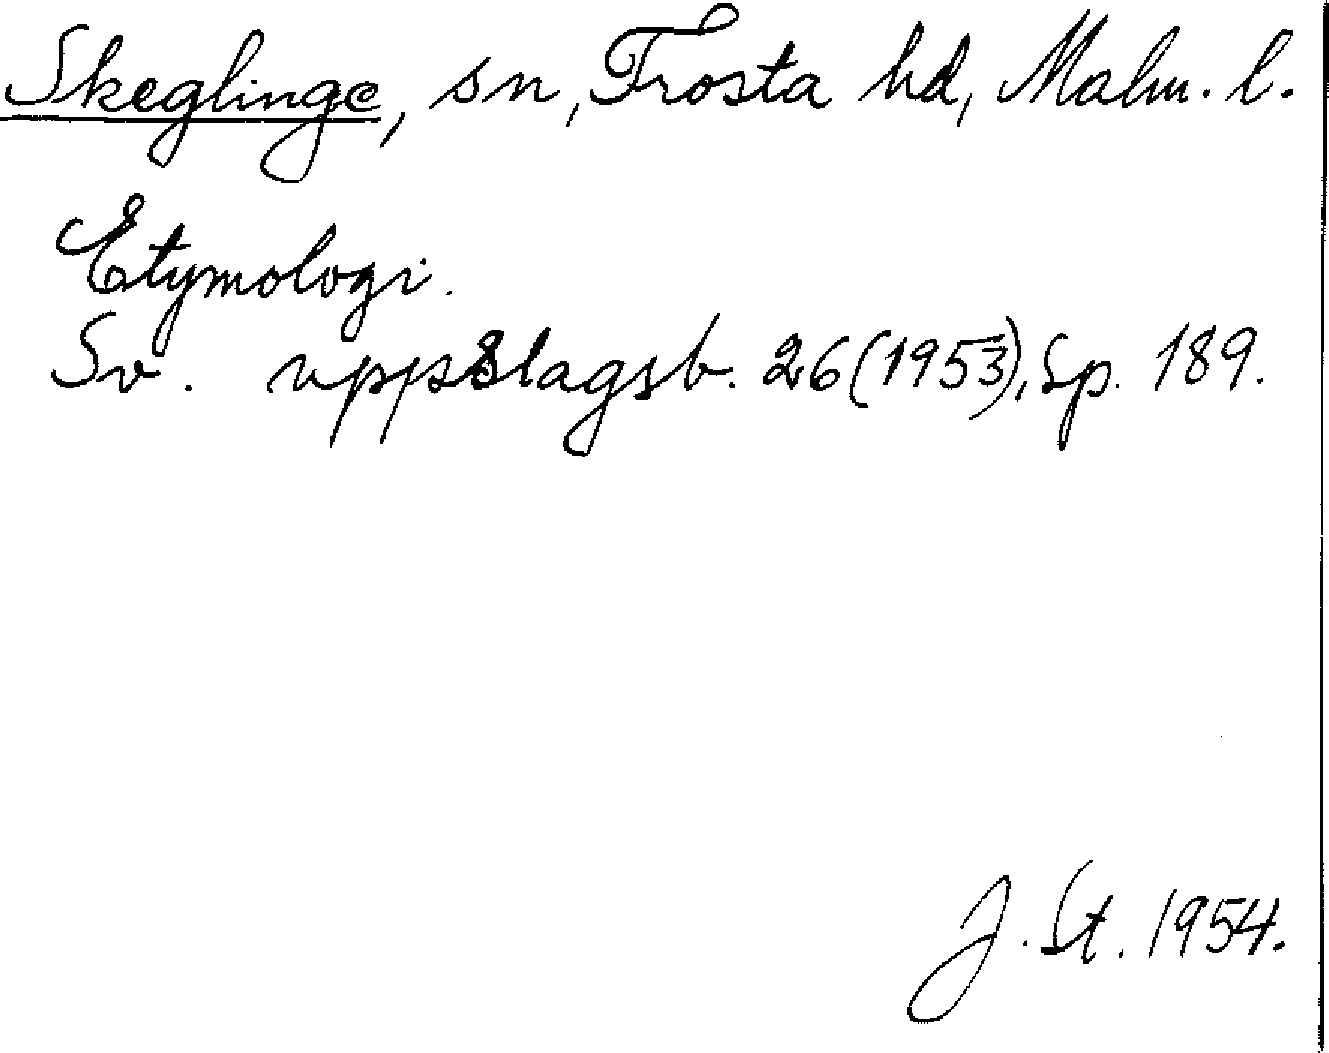 Skeglinge, sn, Frosta hd, Malm. l.
Etymologi.
Sv. uppslagsb. 26 (1953), Sp. 189.
J. St. 1954.